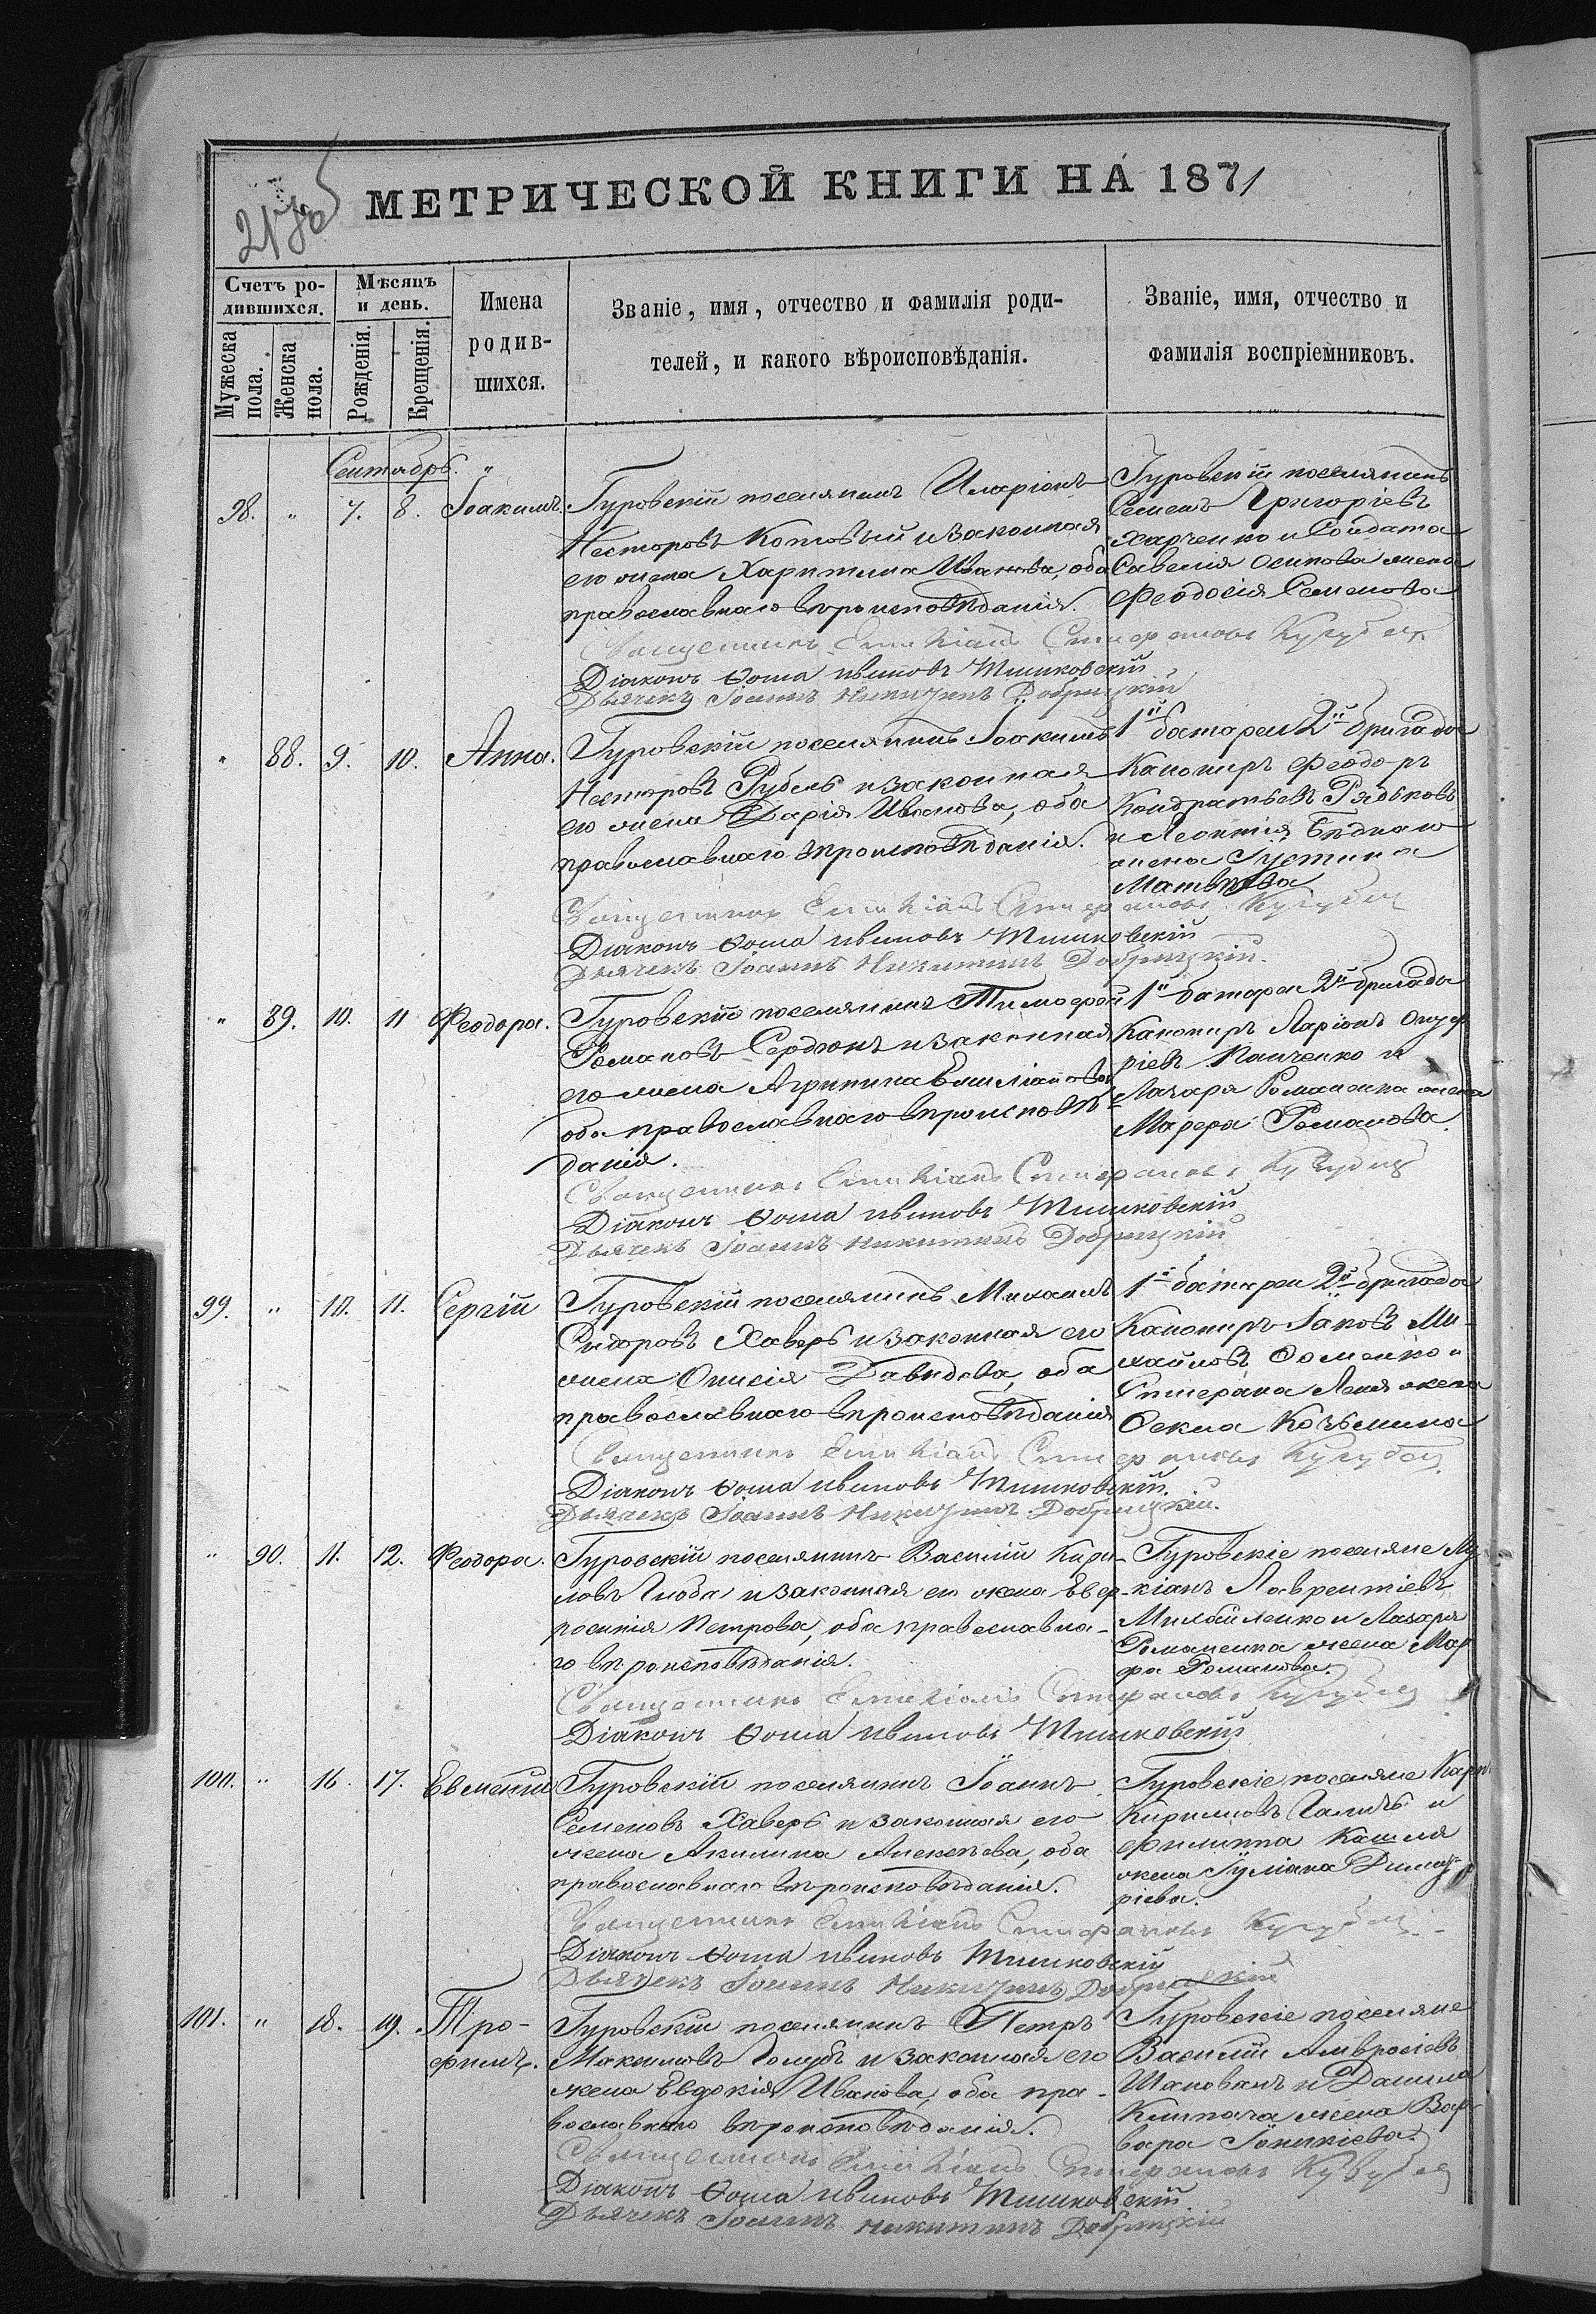 МЕТРИЧЕСКОЙ КНИГИ НА 1871
Счетъ ро-
дившихся.
Мѣсяцъ
и день.
Мужеска
пола.
Женска
пола.
Рожденія.
Крещенія.
Имена
родив-
шихся.
Званіе, имя, отчество и фамилія роди-
телей, и какого вѣроисповѣданія.
Званіе, имя, отчество и
фамилія воспріемниковъ.
Сентябрь. "
98. " 7. 8. Іоакимъ.
Гуровскій поселянинъ Иларіонъ
Несторовъ Котовый и законная
его жена Харитина Иванова, оба
православнаго вѣроисповѣданія.
Гуровскій поселянинъ
Семенъ Григоріевъ
Харченко и Солдата
Савелія Осипова жена
Феодосія Семенова
Священникъ Емиліанъ Стефановъ
Діаконъ Ѳома Ивановъ Тишковскій
Дьячекъ Іоаннъ Никитинъ Добрицкій
" 88. 9. 10. Анна.
Гуровскій поселянинъ Іоакимъ
Несторовъ Рубель и законная
его жена Дарія Иванова, оба
православнаго вѣроисповѣданія.
1й батареи 2й бригады
Канониръ Феодоръ
Кондратьевъ Рядьковъ
и Леонтія Бѣднаго
жена Іустина
Матвѣева
Священникъ Емиліанъ Стефановъ
Діаконъ Ѳома Ивановъ Тишковскій
Дьячекъ Іоаннъ Никитинъ Добрицкій.
" 89. 10. 11 Феодора.
Гуровскій поселянинъ Тимофей
Романовъ Сердюкъ и законная
его жена Агрипина Емиліанова
оба православнаго вѣроисповѣ-
данія.
1й батареи 2й бригады
Канониръ Ларіонъ Онуф
ріевъ Панченко и
Лазаря Романенка жена
Марфа Романова.
Священникъ Емиліанъ Стефановъ
Діаконъ Ѳома Ивановъ Тишковскій
Дьячекъ Іоаннъ Никитинъ Добрицкій
99. " 10. 11. Сергій
Гуровскій поселянинъ Михаилъ
Сидоровъ Хаверь и законная его
жена Онисія Давидова, оба
православнаго вѣроисповѣданія
1й батареи 2й бригады
Канониръ Іаковъ Ми-
хайловъ Ѳоменко и
Стефана жена
Ѳекла Козьмина
Священникъ Емиліанъ Стефановъ
Діаконъ Ѳома Ивановъ Тишковскій.
Дьячекъ Іоаннъ Никитинъ Добрицкій.
" 90. 11. 12. Феодора.
Гуровскій поселянинъ Василій Кири-
ловъ Глоба и законная его жена Евф-
росинія Петрова, оба православна-
го вѣроисповѣданія.
Гуровскіе поселяне Лу-
кіанъ Лаврентіевъ
Михайленко и Лазаря
Романенка жена Мар
фа Романова.
Священникъ Емиліанъ Стефановъ
Діаконъ Ѳома Ивановъ Тишковскій
100. " 16. 17. Евменій
Гуровскій поселянинъ Іоаннъ
Семеновъ Хаверь и законная его
жена Акилина Алексѣева, оба
православнаго вѣроисповѣданія.
Гуровскіе поселяне Карп
Кириловъ Галичъ и
Филиппа Кашля
жена Іуліана Димит-
ріева.
Священникъ Емиліанъ Стефановъ
Діаконъ Ѳома Ивановъ Тишковскій
Дьячекъ Іоаннъ Никитинъ Добрицкій
101. " 18. 19. Тро-
фимъ.
Гуровскій поселянинъ Петръ
Максимовъ Голубъ и законная его
жена Евдокія Иванова, оба пра-
вославнаго вѣроисповѣданія.
Гуровскіе поселяне
Василій Амвросіевъ
Шаповалъ и Данила
жена Вар
вара Іоникіева.
Священникъ Емиліанъ Стефановъ
Діаконъ Ѳома Ивановъ Тишковскій
Дьячекъ Іоаннъ Никитинъ Добрицкій